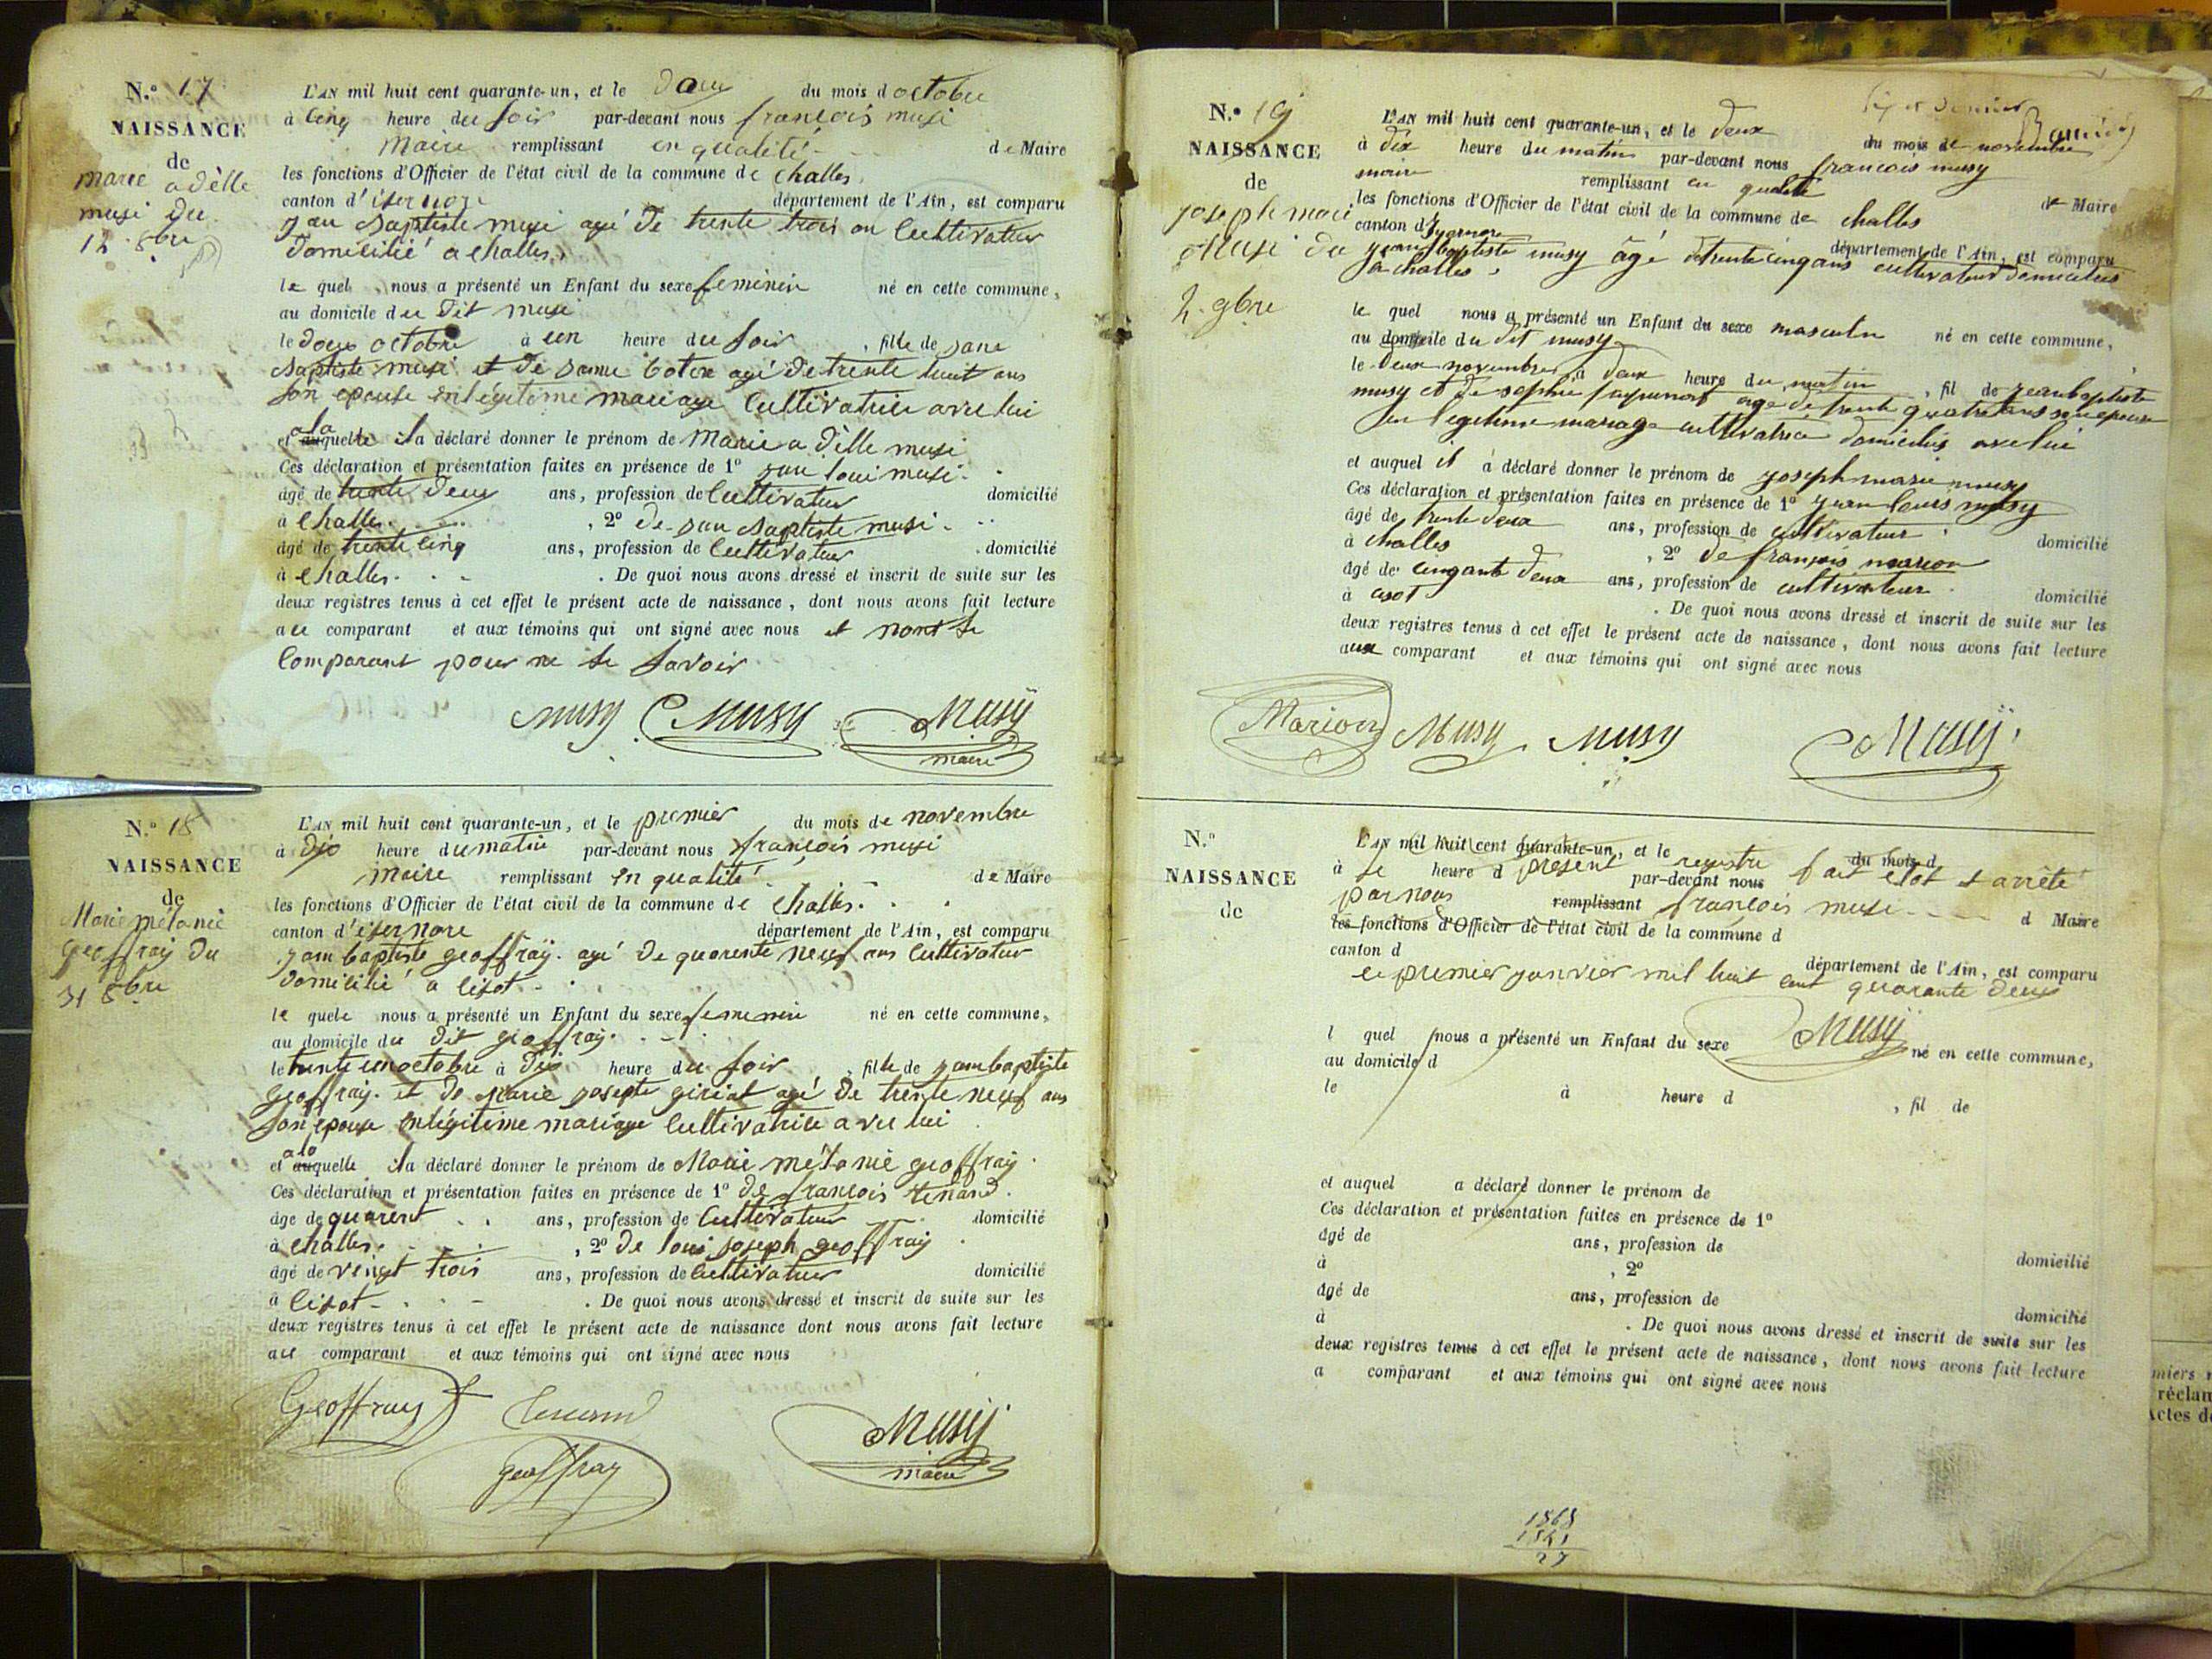 N.º 17
NAISSANCE
de
marie adèlle
musi du
12 8bre
L'AN mil huit cent quarante-un, et le douz du mois d octobre
à cinq heure du soir par-devant nous françois musi
Maire remplissant en qualité de Maire
les fonctions d'Officier de l'état civil de la commune de challes
canton d'isernore département de l'Ain, est comparu
jan baptiste musi agé de trente trois an cultivateur
domicilié a challes.
le quel nous a présenté un Enfant du sexe feminin né en cette commune,
au domicile du dit musi
le douz octobre à un heure du soir, fille de jane
baptiste musi et de janne agé de trente huit ans
son epouse en légitime mariage cultivatrice avec lui
et a la auquelle il a déclaré donner le prénom de Marie a dèlle musi
Ces déclaration et présentation faites en présence de 1º jan loui musi.
âgé de trente deux ans, profession de cultivateur domicilié
à challes , 2º de jan baptiste musi.
âgé de trente cinq ans, profession de cultivateur domicilié
à challes. . De quoi nous avons dressé et inscrit de suite sur les
deux registres tenus à cet effet le présent acte de naissance, dont nous avons fait lecture
au comparant et aux témoins qui ont signé avec nous et nont le
comparant pour ne le savoir
Musy Musy Musÿ
maire
N.º 18
NAISSANCE
de
Marie mélanie
geoffray du
31 8bre
L'AN mil huit cent quarante-un, et le premier du mois de novembre
à dix heure du matin par-devant nous françois musi
maire remplissant en qualité de Maire
les fonctions d'Officier de l'état civil de la commune de challes.
canton d'isernore département de l'Ain, est comparu
jam baptiste geoffraÿ. agé de quarente neuf ans cultivateur
domicilié a
le quele nous a présenté un Enfant du sexe feminin né en cette commune,
au domicile du dit geoffray.
le trente un octobre à dix heure du soir, fille de jambaptiste
geoffray. et de Marie josepte giriat agé de trente neuf ans
son epouse en légitime mariage cultivatrice avec lui
et a la auquelle il a déclaré donner le prénom de Marie mélanie geoffray.
Ces déclaration et présentation faites en présence de 1º de françois tenand.
âgé de quarent ans, profession de cultivateur domicilié
à challes. , 2º de loui joseph geoffray
âgé de vengt trois ans, profession de cultivateur domicilié
à . De quoi nous avons dressé et inscrit de suite sur les
deux registres tenus à cet effet le présent acte de naissance dont nous avons fait lecture
au comparant et aux témoins qui ont signé avec nous
Geoffray tenand
geoffray
Musÿ
maire
N.º 19
NAISSANCE
de
joseph marie
Musi du
2. 9bre
L'AN mil huit cent quarante-un, et le deux du mois de novembre
à dix heure du matin par-devant nous françois musy
maire remplissant en qualité de Maire
les fonctions d'Officier de l'état civil de la commune de challes
canton d'ysernore département de l'Ain, est comparu
jean baptiste musy âgé detrente cinq ans cultivateur domicilies
à challes.
le quel nous a présenté un Enfant du sexe masculin né en cette commune,
au domicile du dit musy
le deux novembre à deux heure du matin, fil de jeanbaptiste
musy et de sophie agé de trente quatre ans son epouse
en legitime mariage cultivatrice domicilies avec lui
et auquel il a déclaré donner le prénom de joseph marie musy
Ces déclaration et présentation faites en présence de 1º jean louis musy
âgé de trente deux ans, profession de cultivateur domicilié
à challes , 2º de françois marion
âgé de cinqante deux ans, profession de cultivateur domicilié
à . De quoi nous avons dressé et inscrit de suite sur les
deux registres tenus à cet effet le présent acte de naissance, dont nous avons fait lecture
aux comparant et aux témoins qui ont signé avec nous
Marion Musy Musy Musÿ
N.º
NAISSANCE
de
L'AN mil huit cent quarante-un, et le du mois d
à le heure d présent registre par-devant nous fait clot et arrêté
par nous remplissant françois musi d Maire
les fonctions d'Officier de l'état civil de la commune d
canton d département de l'Ain, est comparu
le premier janvier mil huit cent quarante deux
Musÿ
l quel nous a présenté un Enfant du sexe né en cette commune,
au domicile d
le à heure d , fil de
et auquel a déclaré donner le prénom de
Ces déclaration et présentation faites en présence de 1º
âgé de ans, profession de
à , 2º domicilié
âgé de ans, profession de
à . De quoi nous avons dressé et inscrit de suite sur les domicilié
deux registres tenus à cet effet le présent acte de naissance, dont nous avons fait lecture
a comparant et aux témoins qui ont signé avec nous
1868
1841
27
miers
réclam
Actes d